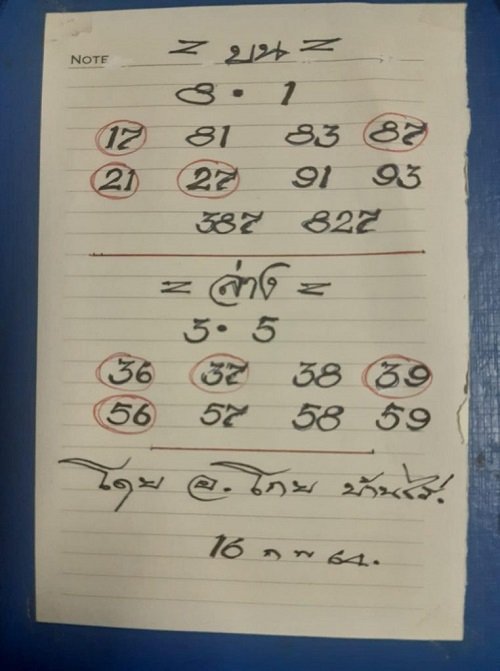 NOTE
= บน =
8 • 1
17 81 83 87
21 27 91 93
387 827
= ล่าง =
3 • 5
36 37 38 39
56 57 58 59
โดย อ. โกย บ้านไร่.
16 ก พ 64.